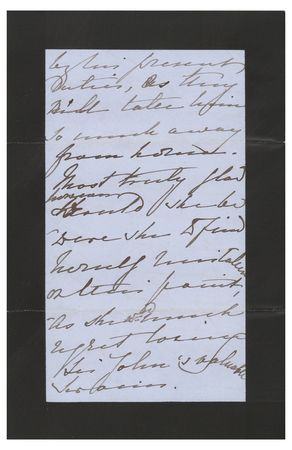 by his present
duties, as they
will take him
so much away
from home.
Most truly glad
however
should she be
were she to find
herself mistaken
on this point,
as she wd much
regret losing
Sir John's valuable
services.